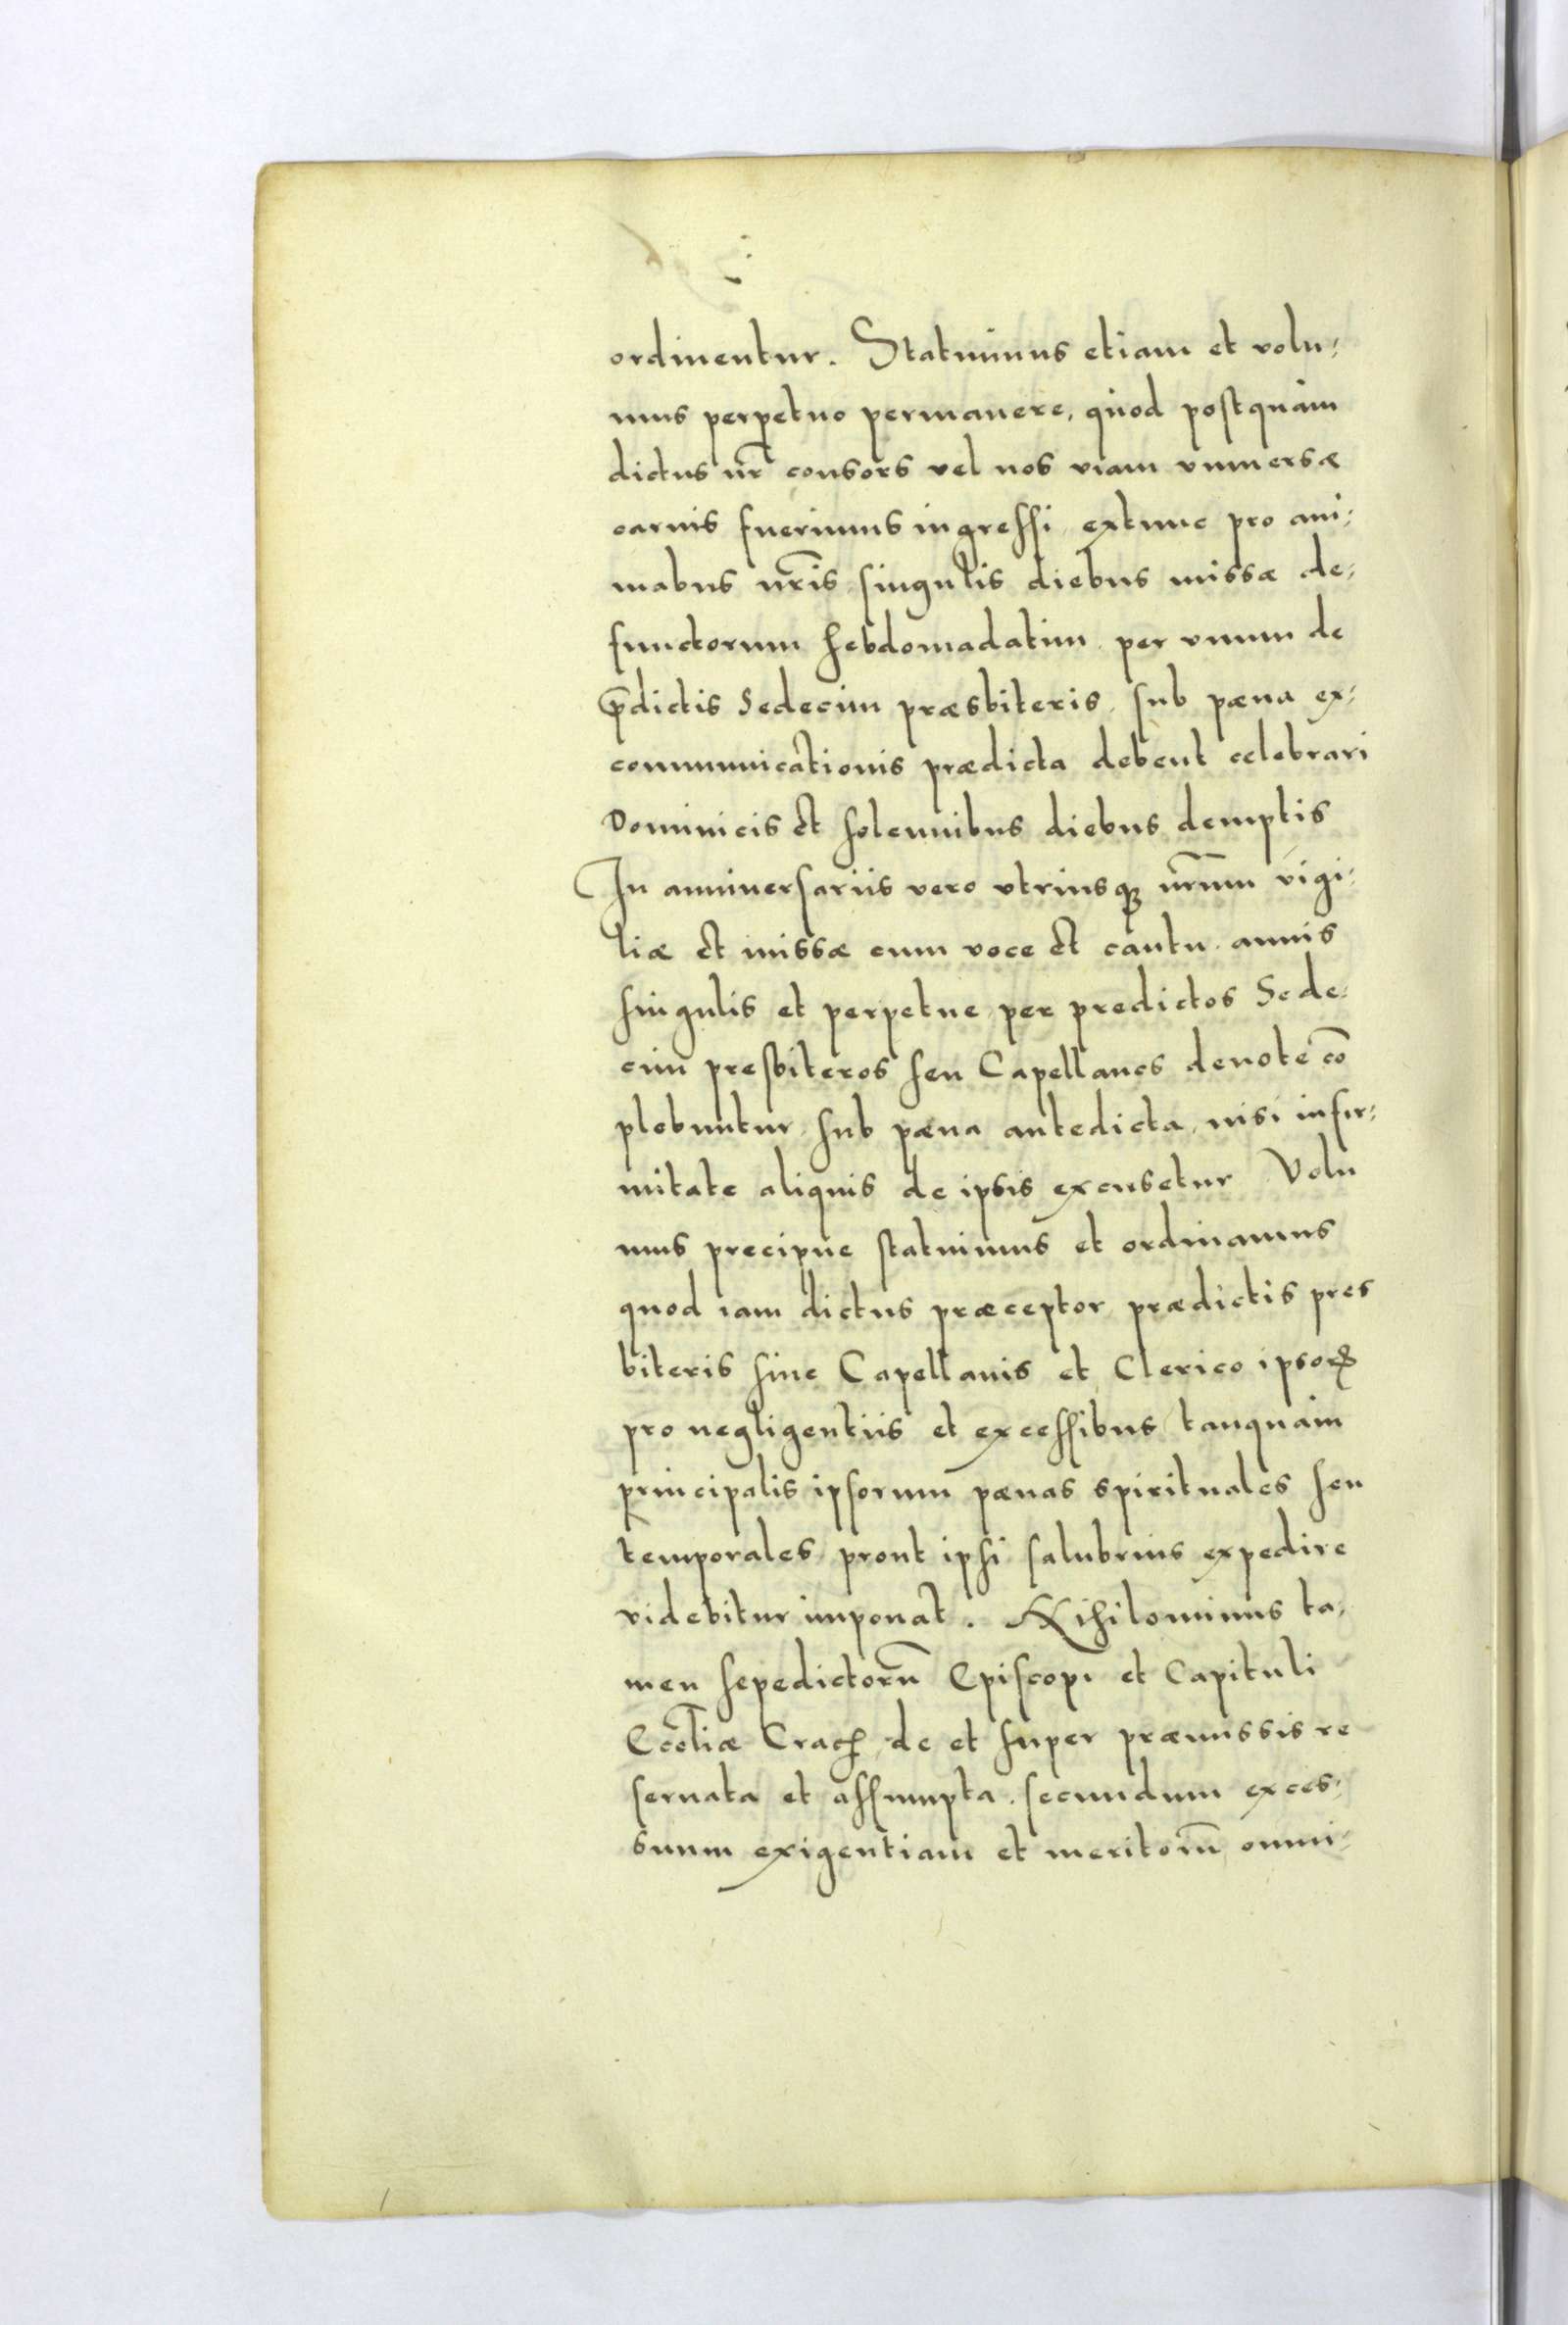 ordinentur. Statuimus etiam et volu-
mus perpetuo permanere, quod postquam
dictus nr̃ consors vel nos viam vniuersæ
carnis fuerimus ingressi, extunc pro ani-
mabus nr̃is singulis diebus missæ de-
functorum hebdomadatim per vnum de
p̃dictis Sedecim præsbiteris, sub pæna ex-
communicationis prædicta debent celebrari
Dominicis et solennibus diebus demptis
In anniuersariis vero vtriusq; nr̃um vigi-
liæ et missæ cum voce et cantu annis
singulis et perpetue per predictos Sede-
cim presbiteros seu Capellanos deuote cõ
plebuntur, sub pæna antedicta, nisi infir-
mitate aliquis de ipsis excusetur Volu
mus precipue statuimus et ordinamus
quod iam dictus præceptor prædictis pres
biteris siue Capellanis et Clerico ipsorꝝ
pro negligentiis et excessibus tanquam
principalis ipsorum pænas spirituales seu
temporales prout ipsi salubrius expedire
videbitur imponat. Nihilominus ta-
men sepedictorũ Episcopi et Capituli
Eccl̃iæ Crac̃, de et super præmissis re
seruata et assumpta, secundum exces-
suum exigentiam et meritorũ omni-